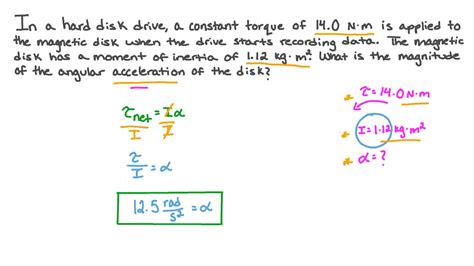 In a hard disk drive, a constant torque of 14.0 N·m is applied to
the magnetic disk when the drive starts recording data. The magnetic
disk has a moment of inertia of 1.12 kg·m². What is the magnitude
of the angular acceleration of the disk?
τ = 14.0 N·m
I = 1.12 kg·m²
α = ?
τnet = Iα
I I
τ
I = α
12.5 rad/s² = α